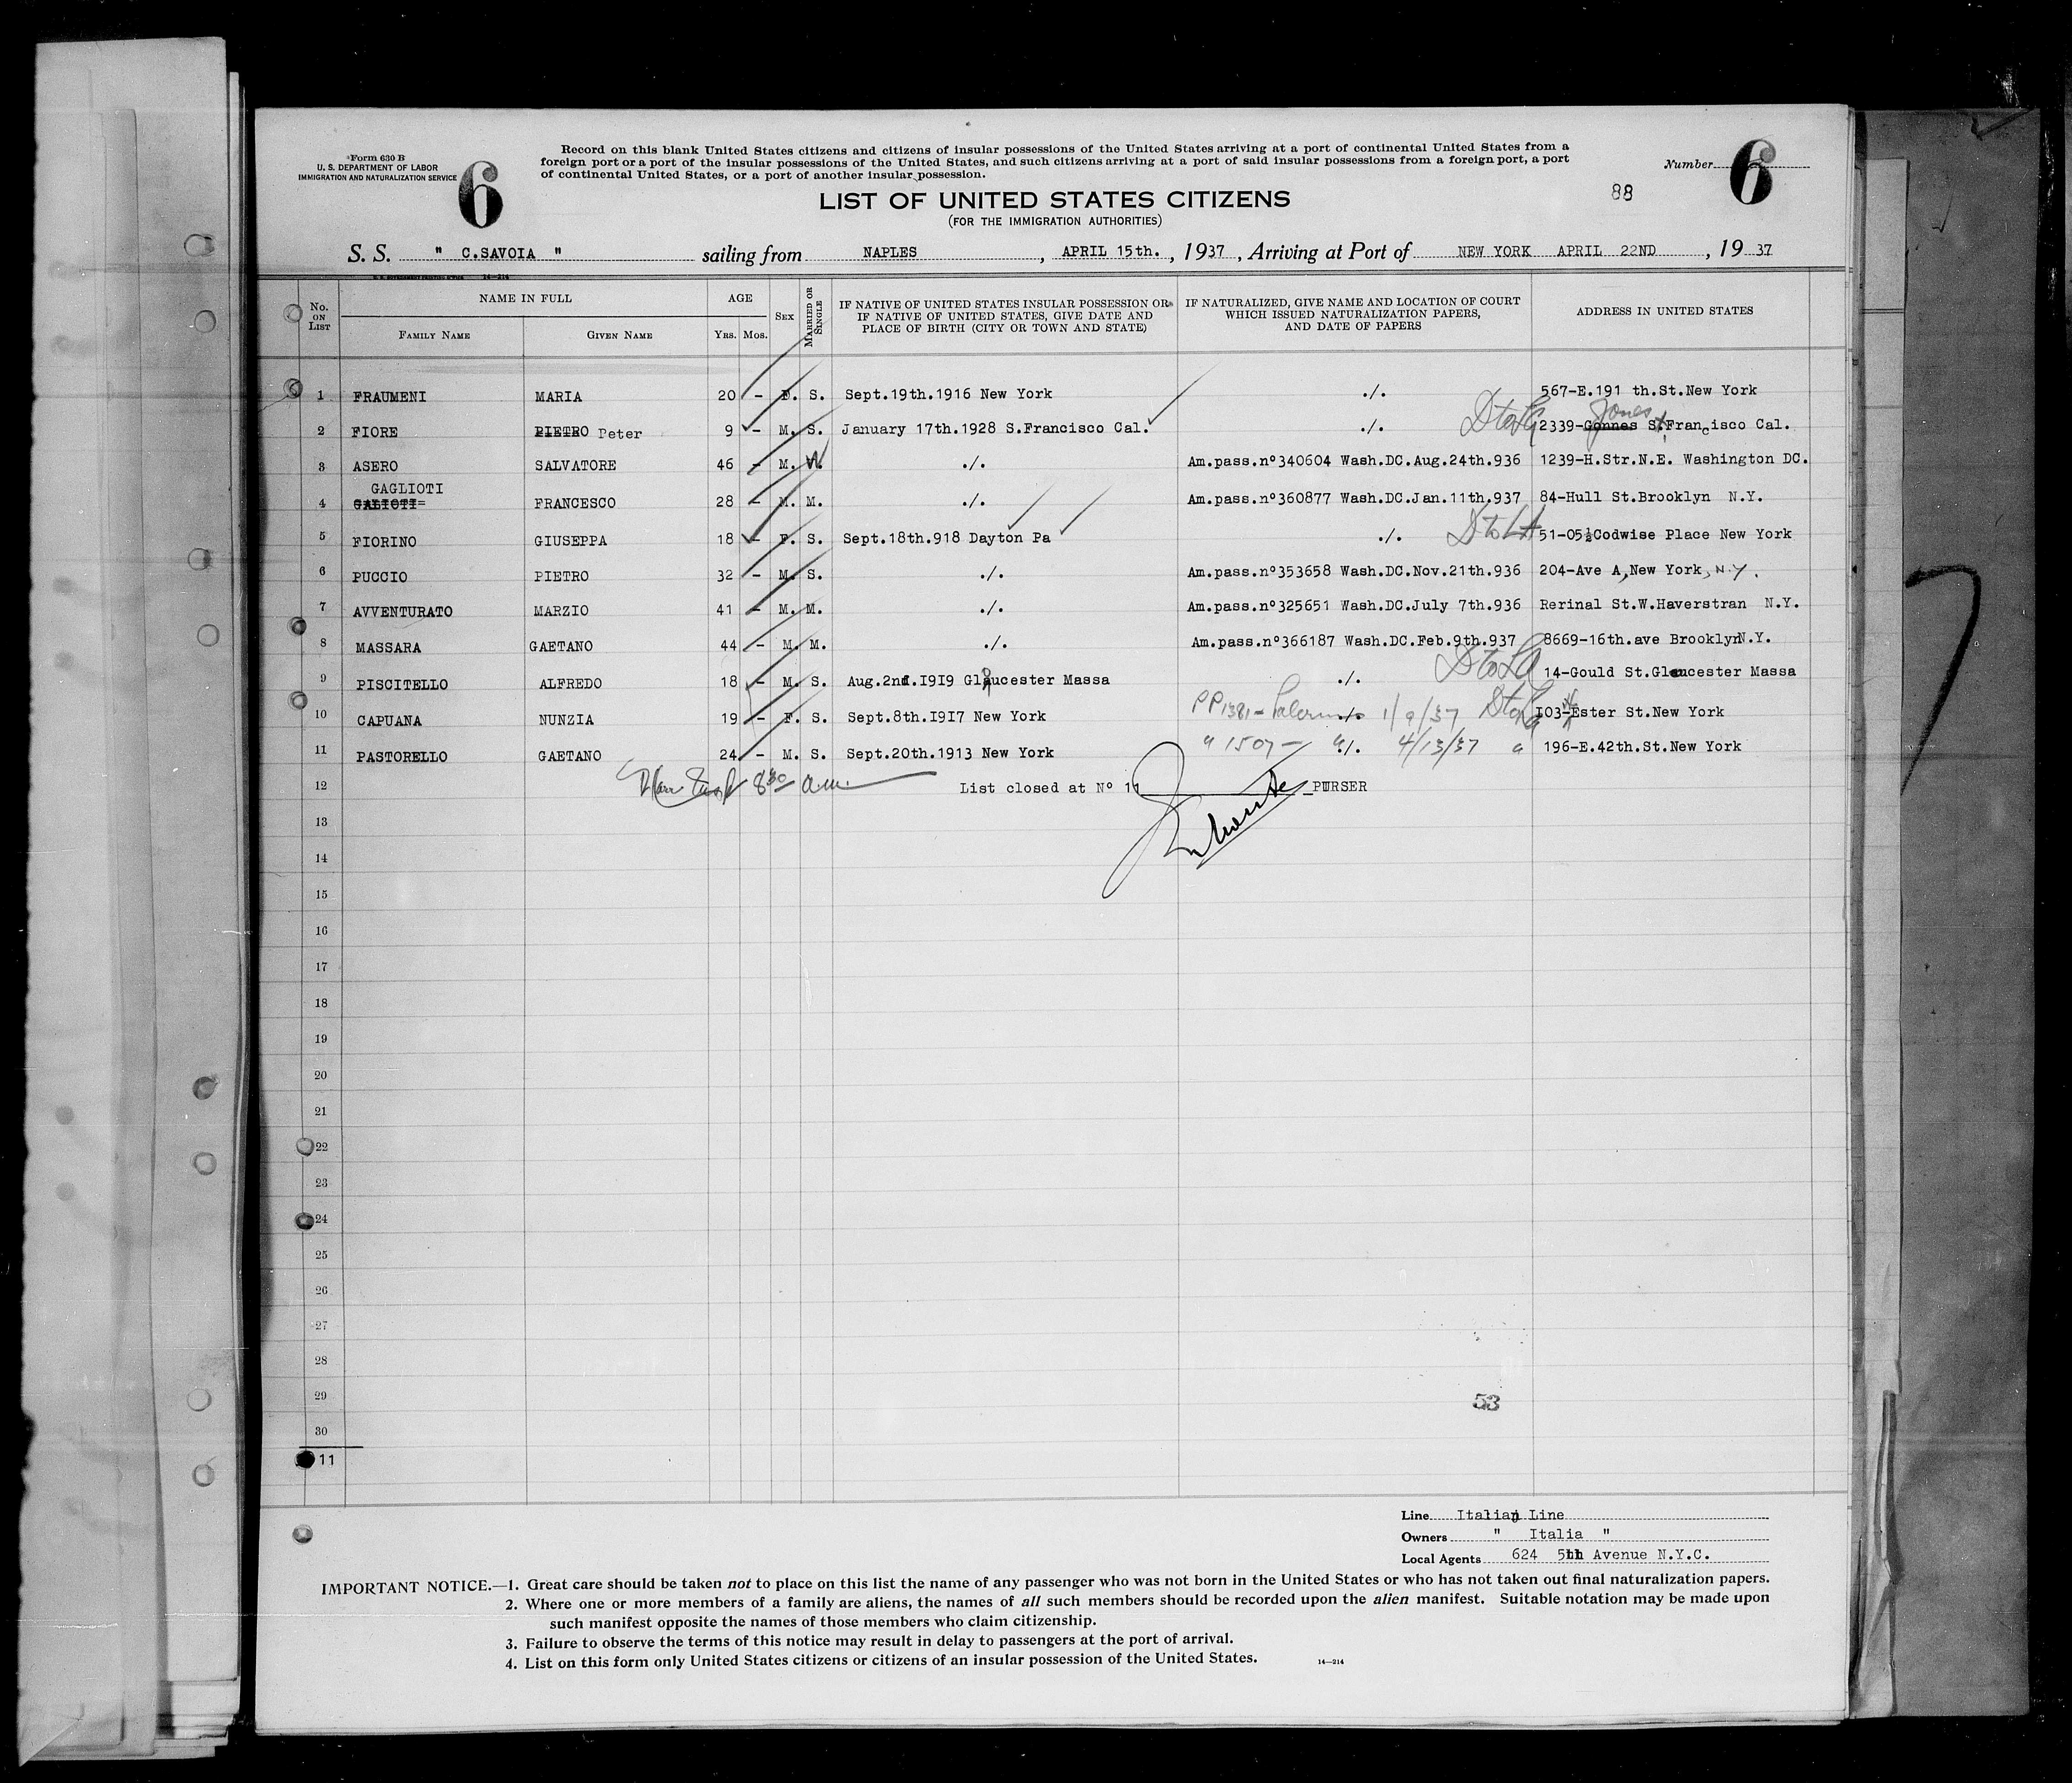 Form 630 B
U. S. DEPARTMENT OF LABOR
IMMIGRATION AND NATURALIZATION SERVICE
6
Record on this blank United States citizens and citizens of insular possessions of the United States arriving at a port of continental United States from a
foreign port or a port of the insular possessions of the United States, and such citizens arriving at a port of said insular possessions from a foreign port, a port
of continental United States, or a port of another insular possession.
Number 6
88
LIST OF UNITED STATES CITIZENS
(FOR THE IMMIGRATION AUTHORITIES)
S. S. " C.SAVOIA " sailing from NAPLES, APRIL 15th., 1937, Arriving at Port of NEW YORK APRIL 22ND, 1937
14—214
No. ON LIST NAME IN FULL AGE SEX MARRIED OR SINGLE IF NATIVE OF UNITED STATES INSULAR POSSESSION OR IF NATIVE OF UNITED STATES, GIVE DATE AND PLACE OF BIRTH (CITY OR TOWN AND STATE) IF NATURALIZED, GIVE NAME AND LOCATION OF COURT WHICH ISSUED NATURALIZATION PAPERS, AND DATE OF PAPERS ADDRESS IN UNITED STATES
FAMILY NAME GIVEN NAME YRS. MOS.
1 FRAUMENI MARIA 20 - F. S. Sept.19th.1916 New York ./. 567-E.191 th.St.New York
Jones
2 FIORE PIETRO Peter 9 - M. S. January 17th.1928 S.Francisco Cal. ./. 2339-Gonnes St.Francisco Cal.
3 ASERO SALVATORE 46 - M. W. ./. Am.pass.nº340604 Wash.DC.Aug.24th.936 1239-H.Str.N.E. Washington DC.
GAGLIOTI
4 GALIOTI FRANCESCO 28 - M. M. ./. Am.pass.nº360877 Wash.DC.Jan.11th.937 84-Hull St.Brooklyn N.Y.
5 FIORINO GIUSEPPA 18 - F. S. Sept.18th.918 Dayton Pa ./. D to LA 51-05½Codwise Place New York
6 PUCCIO PIETRO 32 - M. S. ./. Am.pass.nº353658 Wash.DC.Nov.21th.936 204-Ave A,New York, N.Y.
7 AVVENTURATO MARZIO 41 - M. M. ./. Am.pass.nº325651 Wash.DC.July 7th.936 Rerinal St.W.Haverstran N.Y.
8 MASSARA GAETANO 44 - M. M. ./. Am.pass.nº366187 Wash.DC.Feb.9th.937 8669-16th.ave Brooklyn N.Y.
9 PISCITELLO ALFREDO 18 - M. S. Aug.2nd.I9I9 Gloucester Massa ./. D to LA 14-Gould St.Gloucester Massa
10 CAPUANA NUNZIA 19 - F. S. Sept.8th.I9I7 New York PP1381-Palermo ./. 1/9/37 I03-Ester St.New York
11 PASTORELLO GAETANO 24 - M. S. Sept.20th.1913 New York " 1507 - " ./. 4/13/37 196-E.42th.St.New York
12 8 30 a.m. List closed at Nº 11 PURSER
13
14
15
16
17
18
19
20
21
22
23
24
25
26
27
28
29
53
30
11
Line Italian Line
Owners " Italia "
Local Agents 624 5th Avenue N.Y.C.
IMPORTANT NOTICE.—1. Great care should be taken not to place on this list the name of any passenger who was not born in the United States or who has not taken out final naturalization papers.
2. Where one or more members of a family are aliens, the names of all such members should be recorded upon the alien manifest. Suitable notation may be made upon
such manifest opposite the names of those members who claim citizenship.
3. Failure to observe the terms of this notice may result in delay to passengers at the port of arrival.
4. List on this form only United States citizens or citizens of an insular possession of the United States.
14—214
7